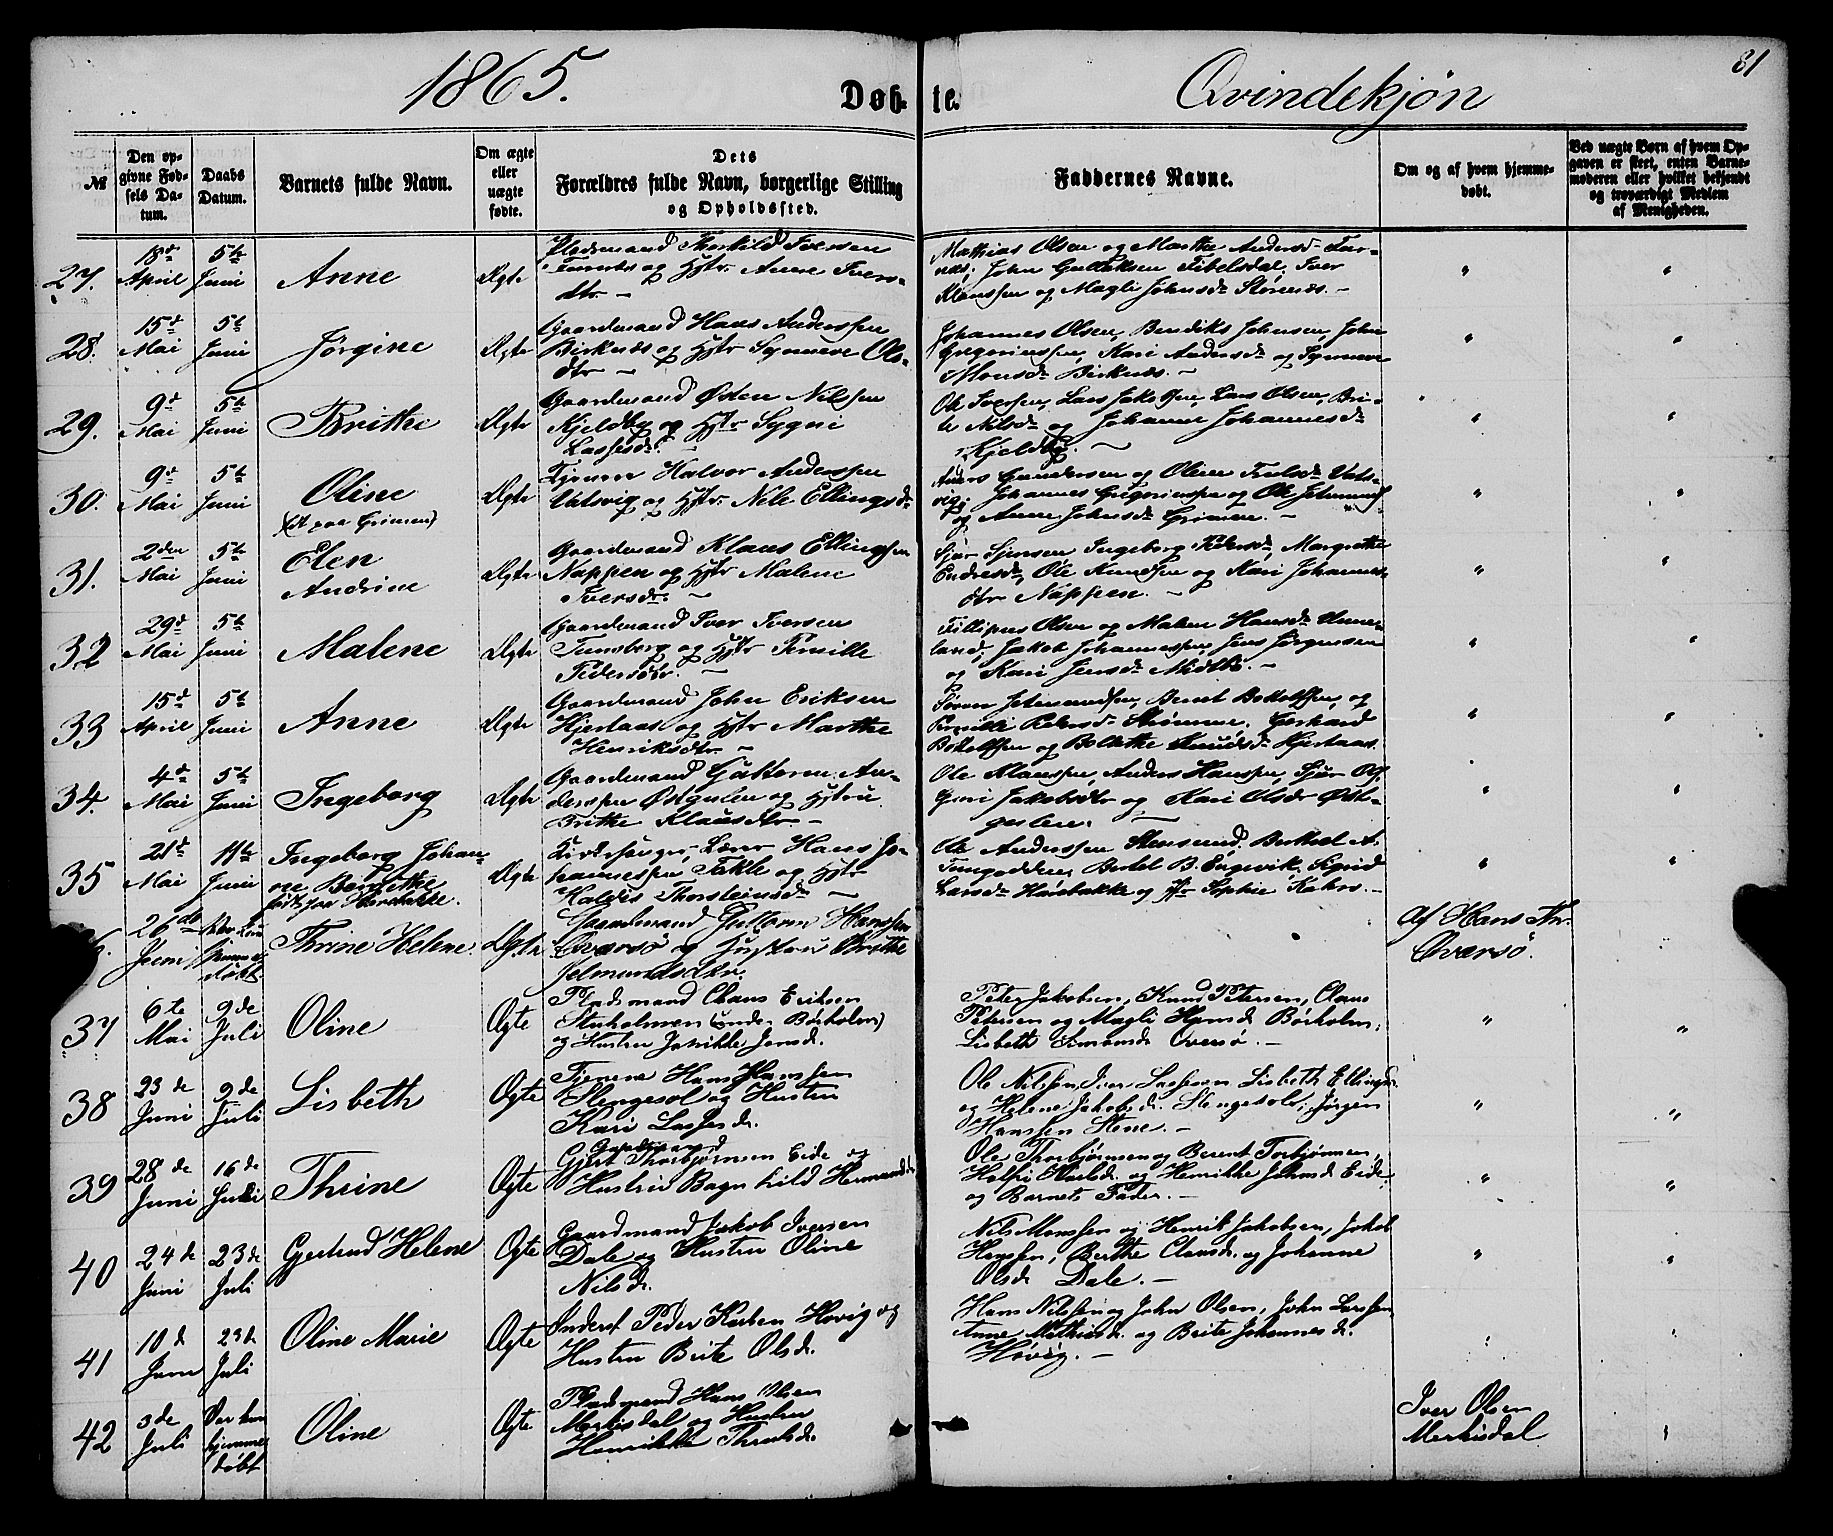 81
1865.
Døb-
te.
Qvindekjøn
№
Den op-
givne Fød-
sels Da-
tum.
Daabs
Datum.
Barnets fulde Navn.
Om ægte
eller
uægte
fødte.
Dets
Forældres fulde Navn, borgerlige Stilling
og Opholdssted.
Faddernes Navne.
Om og af hvem hjemme-
døbt.
Ved uægte Børn af hvem Op-
gaven er skeet, enten Barne-
moderen eller hvilket bekjendt
og troværdigt Medlem
af Menigheden.
27.
18d April
5te Juni
Anne
Ægte
Pladsmand Thorkild Iversen
og Hstr. Anne Ivers-
dtr. —
Mathias Olsen og Marthe Andersd.
John Gulliksen Iver
Klaussen og Magli Johnsd.
28.
15d Mai
5te Juni
Jørgine
Ægte
Gaardmand Hans Anderssen
Birknæs og Hstr Synneve Ols-
dtr —
Johannes Olsen, Bendiks Johnsen, John
Gregoriussen, Kari Andersd. og Synneve
Monsd. Birknæs. —
29.
9d Mai
5te Juni
Brithe
Ægte
Gaardmand Østen Nilssen
og Hstr Sygni
Lassesdr. —
Ole Iversen, Lars Jakobsen, Lars Olsen, Bri-
te Nilsd. og Johanne Johannesd.
30.
9d Mai
5te Juni
Oline
Ægte
Tjener Halvor Anderssen
Vatsvig og Hstr. Nile Ellingsd.
Anders Gundersen og Olene
Johannes Gregoriussen og Ole
og Anne Johnsd. Grimen. —
31.
2den Mai
5te Juni
(St. paa Grimen)
Elen
Andrine
Ægte
Gaardmand Klaus Ellingsen
Nappen og Hstr Malene
Iversdr. —
Ingeborg Pedersd., Margrethe
Endresd., Ole Knudsen og Kari Johannes-
dtr Nappen. —
32
29d Mai
5te Juni
Malene
Ægte
Gaardmand Iver Iversen
Tunsberg og Hstr Pernille
Pedersdtr. —
Fillippus Olsen og Malene Hansd.
land, Jakob Johannessen, Jens Jørgensen
og Kari Jensd. Midtbø. —
33
15d April
5te Juni
Anne
Ægte
Gaardmand John Eriksen
Hjertaas og Hstr Marthe
Henriksdtr. —
Søren Jetmundsen, Bernt Botolfsen, og
Pernille Pedersd. Strømmen, Gerhard
Botolfsen og Bolethe Knudsd. Hjertaas.
34.
4d Mai
5te Juni
Ingeborg
Ægte
Gaardmand Guttorm An-
derssen Østgulen og Hstru
Brithe Klausdtr. —
Ole Klaussen, Anders Hanssen,
Guri Jakobsdtr og Kari Olsdr Øst-
gulen. —
35
21d Mai
11te Juni
Ingeborg Johan-
ne Bergithe
Ægte
Kirkesanger, Lærer Hans Jo-
hannessen Tekle og Hstr
Haldis Thorsteinsd. —
Ole Anderssen Berthel A.
Bertel B. Engevik, Sigrid
Larsd. Hornbakke og Fr Sophie Kahrs. —
26de Juni
hjemme-
døbt
Thrine Helene.
Ægte
Gaardmand Guttorm Hanssen
Qværsø og Hustru Brithe
Jetmundsdtr.
Af Hans Thr.
Qværsø.
37
6te Mai
9de Juli
Oline
Ægte
Pladsmand Claus Eriksen
Stuholmen (under Børholm)
og Hustru Jensd.
Peter Jakobsen, Knud Petersen, Claus
Petersen og Magli Hansd. Børholm,
Lisbeth Qværsø. —
38
23de Juni
9de Juli
Lisbeth
Ægte
Tjener Hans Hanssen
Stengesol og Hustru
Kari Lassesdr.
Ole Nilssen, Iver Lassesen Lisbeth Ellingsd.
og Helene Jakobsdr. Stengesol, Jørgen
Hanssen Stene. —
39
28de Juni
16de Juli
Thrine
Ægte
Gaardmand
Gjert Thorbjørnsen Eide og
Hustru Ragnhild Hermundsdr.
Ole Thorbjørnsen og Berent Torbjørnsen,
og Henrikke Johnsd. Eide,
og Barnets Fader. —
40
24de Juni
23de Juli
Gjertrud Helene
Ægte
Gaardmand Jakob Iversen
Dale og Hustru Oline
Nilsdr.
Nils Monssen og Henrik Jakobsen, Jakob
Hanssen, Berthe Clausd. og Johanne
Olsdr. Dale. —
41
10d Juni
23de Juli
Oline Marie
Ægte
Inderst Peder Hovig og
Hustru Brite Olsdr.
Hans Nilssen og John Olsen, John Larssen
Anne Mathiasdr. og Brite Johannesdr.
Hovig. —
42
3de Juli
hjemme
døbt
Oline
Ægte
Pladsmand Hans Olsen
Merkisdal og Hustru
Henrikke
Iver Olsen
Merkisdal